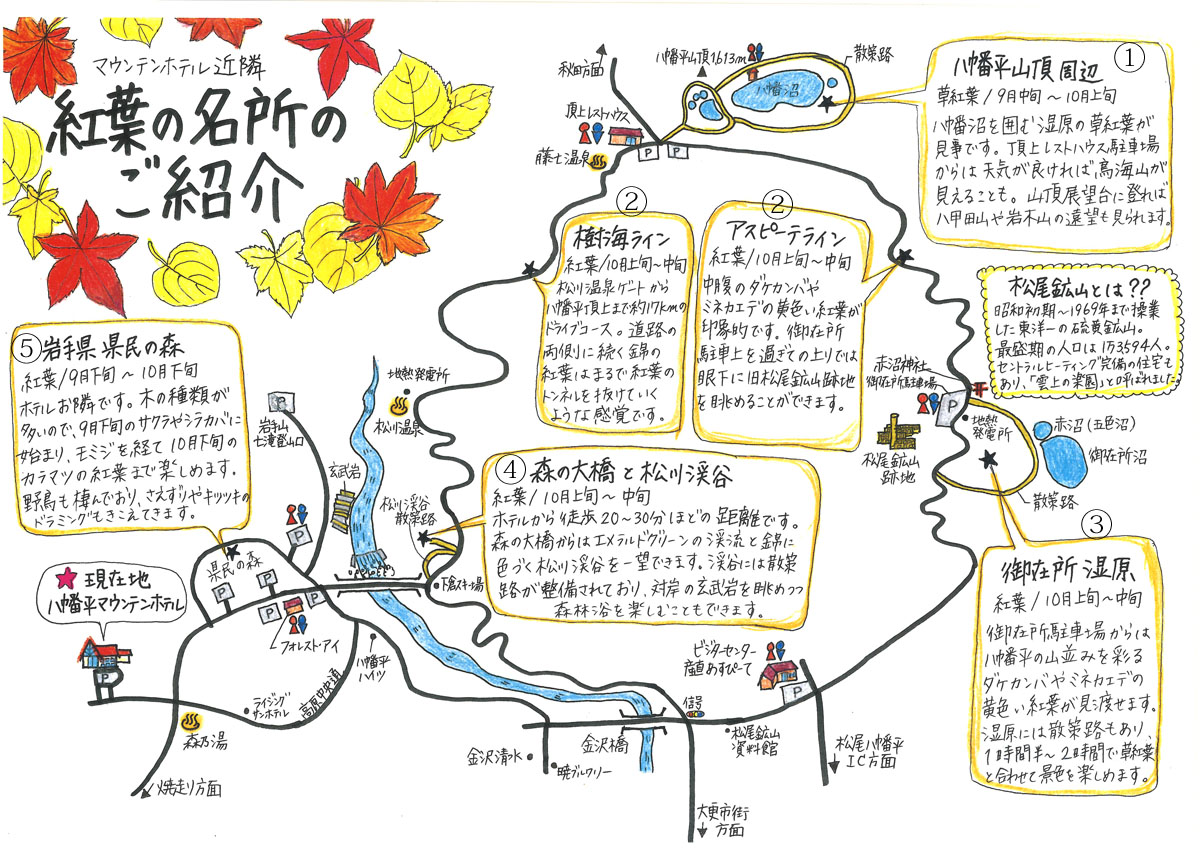 マウンテンホテル近隣
紅葉の名所の
ご紹介
秋田方面
八幡平山頂1,613m
八幡沼
散策路
頂上レストハウス
藤七温泉
P
P
①
八幡平山頂周辺
草紅葉/9月中旬～10月上旬
八幡沼を囲む湿原の草紅葉が
見事です。頂上レストハウス駐車場
からは天気が良ければ、鳥海山が
見えることも。山頂展望台に登れば
八甲田山や岩木山の遠望も見られます。
②
樹海ライン
紅葉/10月上旬～中旬
松川温泉ゲートから
八幡平頂上まで約17kmの
ドライブコース。道路の
両側に続く錦の
紅葉はまるで紅葉の
トンネルを抜けていく
ような感覚です。
②
アスピーテライン
紅葉/10月上旬～中旬
中腹のダケカンバや
ミネカエデの黄色い紅葉が
印象的です。御在所
駐車上を過ぎての上りでは
眼下に旧松尾鉱山跡地
を眺めることができます。
松尾鉱山とは??
昭和初期～1969年まで操業
した東洋一の硫黄鉱山。
最盛期の人口は1万3594人。
セントラルヒーティング完備の住宅も
あり、「雲上の楽園」と呼ばれました。
⑤岩手県 県民の森
紅葉/9月下旬～10月下旬
ホテルお隣です。木の種類が
多いので、9月下旬のサクラやシラカバに
始まり、モミジを経て10月下旬の
カラマツの紅葉まで楽しめます。
野鳥も棲んでおり、さえずりやキツツキの
ドラミングもきこえてきます。
地熱発電所
松川温泉
P
岩手山
七滝登山口
玄武岩
松川渓谷
散策路
赤沼神社
御在所駐車場
P
地熱
発電所
松尾鉱山
跡地
赤沼(五色沼)
御在所沼
散策路
④ 森の大橋と松川渓谷
紅葉/10月上旬～中旬
ホテルから徒歩20～30分ほどの距離です。
森の大橋からはエメラルドグリーンの渓流と錦に
色づく松川渓谷を一望できます。渓谷には散策
路が整備されており、対岸の玄武岩を眺めつつ
森林浴を楽しむこともできます。
③
御在所湿原
紅葉/10月上旬～中旬
御在所駐車場からは
八幡平の山並みを彩る
ダケカンバやミネカエデの
黄色い紅葉が見渡せます。
湿原には散策路もあり、
1時間半～2時間で草紅葉
と合わせて景色を楽しめます。
P
県民の森
P
P
P
フォレスト・アイ
下倉スキー場
現在地
八幡平マウンテンホテル
P
八幡平
ハイツ
ライジング
サンホテル
高原中央通
森乃湯
焼走り方面
ビジターセンター
産直あすぴーて
P
信号
金沢清水
暁ブルワリー
金沢橋
松尾鉱山
資料館
松尾八幡平
IC方面
大更市街
方面